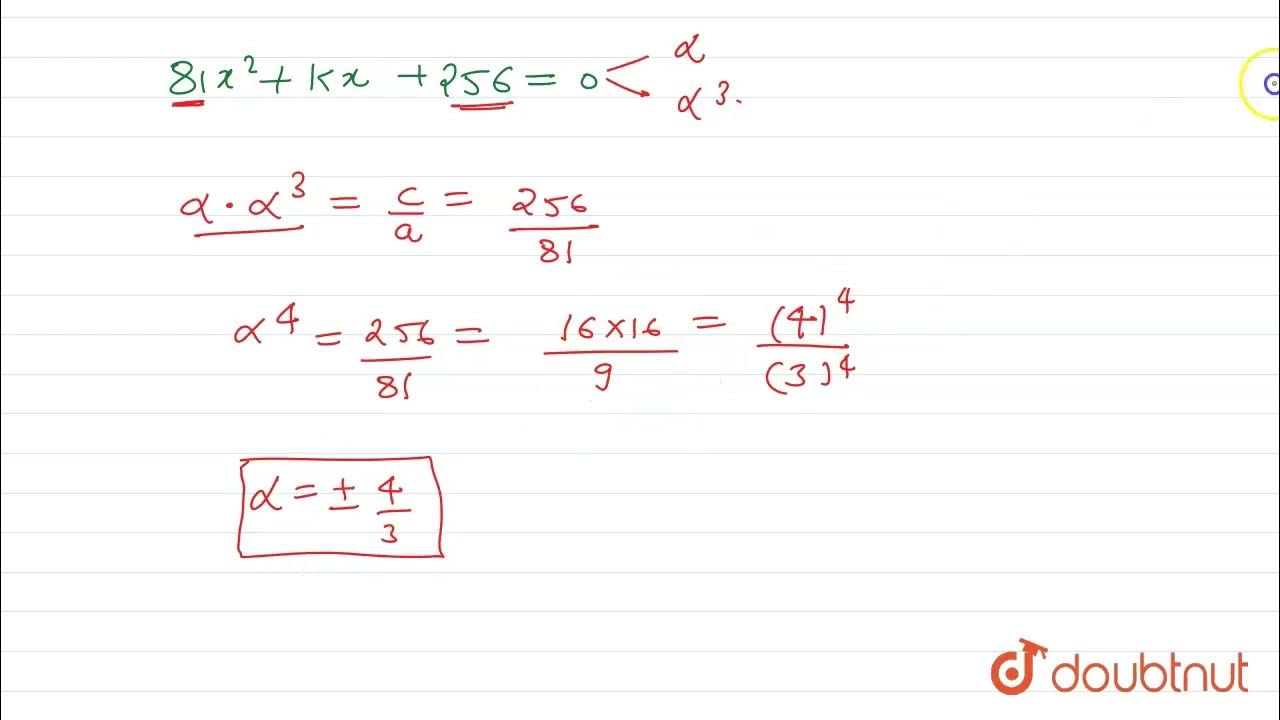 81x² + kx + 256 = 0 < α
α³.
α · α³ = c/a = 256/81
α⁴ = 256/81 = 16×16/9 = (4)⁴/(3)⁴
α = ± 4/3
doubtnut